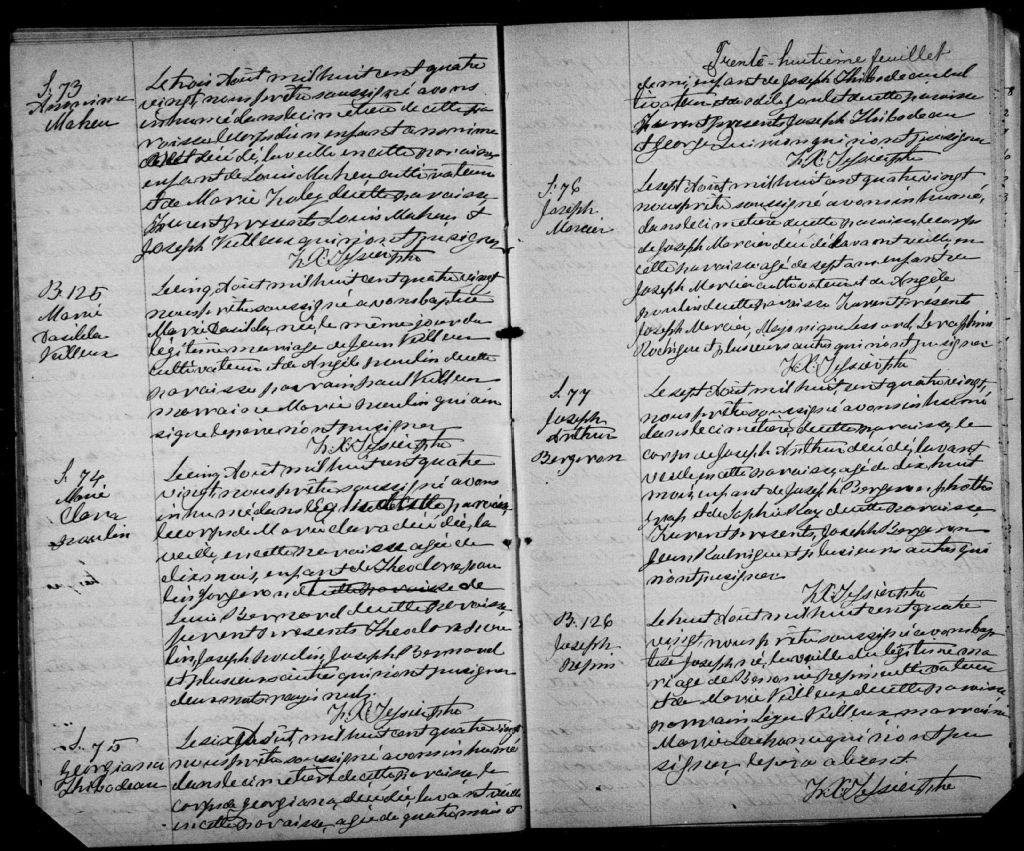 S. 73
Anonime
Maheu
Le trois Août mil huit cent quatre
vingt, nous prêtre soussigné avons
inhumé dans le cimetière de cette pa
roisse le corps d'un enfant anonime
décédé, la veille en cette paroisse
enfant de Louis Maheu cultivateur
et de Marie Foley de cette paroisse
Furent présents Louis Maheu et
Joseph Veilleux qui n'ont pu signer
F. X. Tessier ptre
B. 125
Marie
Dasilda
Veilleux
Le cinq Août mil huit cent quatre vingt
nous prêtre soussigné avons baptisé
Marie Dasilda, née, le même jour du
légitime mariage de Jean Veilleux
cultivateur et de Angèle poulin de cette
paroisse parrain paul Veilleux
marraine Marie poulin qui ain
signé le pere n'ont pu signer
F. X. Tessier ptre
S. 74
Marie
Clara
poulin
Le cinq Août mil huit cent quatre
vingt nous prêtre soussigné avons
inhumé dans l'Eglise de cette paroisse,
le corps de Marie Clara décédée, la
veille, en cette paroisse agée de
dix mois, enfant de Theodore pou
lin forgeron de cette paroisse de
Bernard de cette paroisse
furent présents Theodore pou
lin Joseph poulin, Joseph Bernard
et plusieurs autres qui n'ont pu signer
deux mots rayés nuls.
F. X. Tessier ptre
S. 75
Georgiana
Thibodeau
Le six Août, mil huit cent quatre vingt
nous prêtre soussigné avons inhumé
dans le cimetière de cette paroisse le
corps de Georgiana, décédée, l'avant veille
en cette paroisse, agée de quatre mois et
Trente-huitième feuillet
demi, enfant de Joseph Thibodeau cul
tivateur et de Odile Goulet de cette paroisse
Furent présents Joseph Thibodeau
et George qui n'ont pu signer
F. X. Tessier ptre
S. 76
Joseph
Mercier
Le sept Août mil huit cent quatre vingt
nous prêtre soussigné avons inhumé,
dans le cimetière de cette paroisse, le corps
de Joseph Mercier décédé l'avant veille, en
cette paroisse agé de sept ans enfant de
Joseph Mercier cultivateur et de Angèle
poulin de cette paroisse Furent présents
Joseph Mercier, Lessard, Seraphin
Rodrigue et plusieurs autres qui n'ont pu signer
F. X. Tessier ptre
S. 77
Joseph
Arthur
Bergeron
Le sept Août mil huit cent quatre vingt,
nous prêtre soussigné avons inhumé
dans le cimetière de cette paroisse, le
corps de Joseph Arthur décédé, l'avant
veille, en cette paroisse, agé de dix huit
mois, enfant de Joseph Bergeron photho
graphe et de Sophie Roy de cette paroisse
Furent présents, Joseph Bergeron
Jean Rodrigue et plusieurs autres qui
n'ont pu signer
F. X. Tessier ptre
B. 126
Joseph
Nepins
Le huit Août mil huit cent quatre
vingt, nous prêtre soussigné avons bap
tisé Joseph, né, la veille du légitime ma
riage de cultivateur
et de Marie Veilleux de cette paroisse,
parrain Veilleux marraine
Marie qui n'ont pu
signer, le pere absent
F. X. Tessier ptre